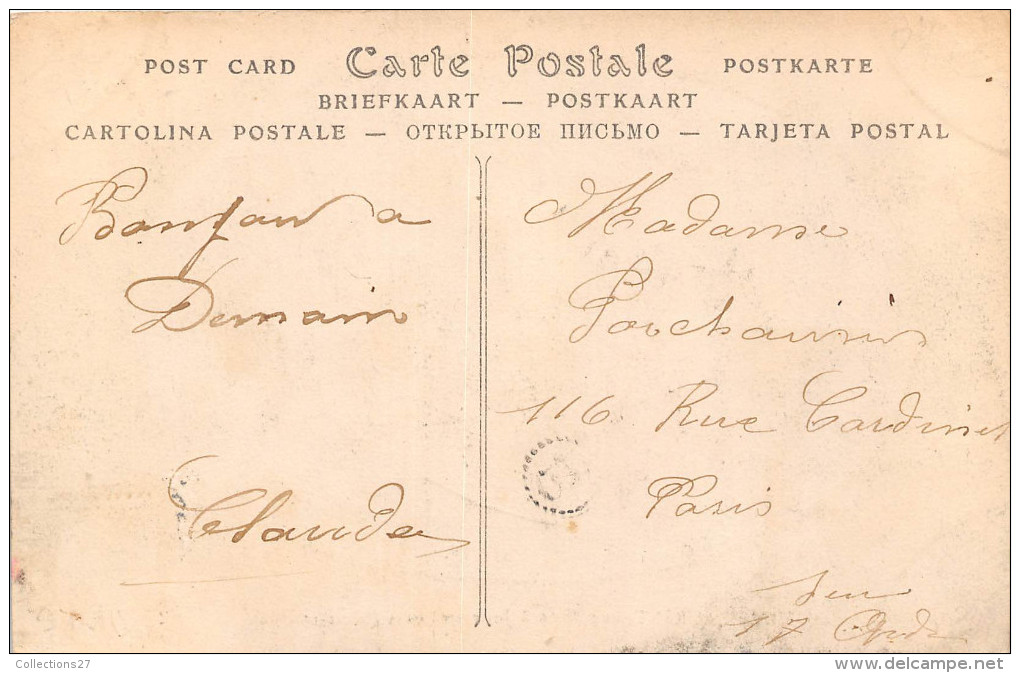 POST CARD Carte Postale POSTKARTE
BRIEFKAART — POSTKAART
CARTOLINA POSTALE — ОТКРЫТОЕ ПИСЬМО — TARJETA POSTAL
Bonjour a
Demain
Claude
Madame
116 Rue Cardinet
Paris
17
Collections27
www.delcampe.net